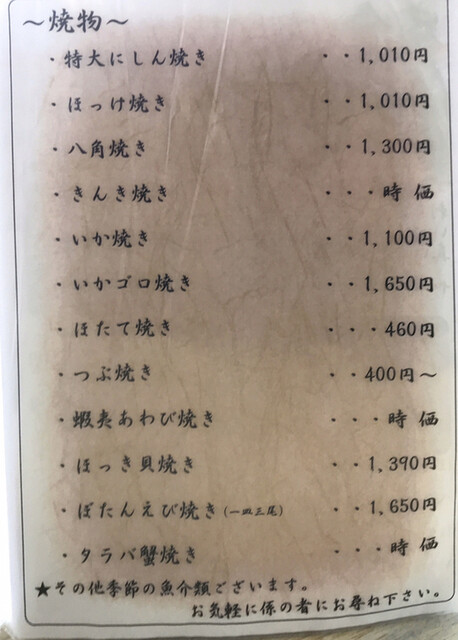 ～焼物～
・特大にしん焼き ・・1,010円
・ほっけ焼き ・・1,010円
・八角焼き ・・1,300円
・きんき焼き ・・・時価
・いか焼き ・・1,100円
・いかゴロ焼き ・・1,650円
・ほたて焼き ・・・460円
・つぶ焼き ・・400円～
・蝦夷あわび焼き ・・・時価
・ほっき貝焼き ・・1,390円
・ぼたんえび焼き(一皿三尾) ・・1,650円
・タラバ蟹焼き ・・・時価
★その他季節の魚介類ございます。
お気軽に係の者にお尋ね下さい。